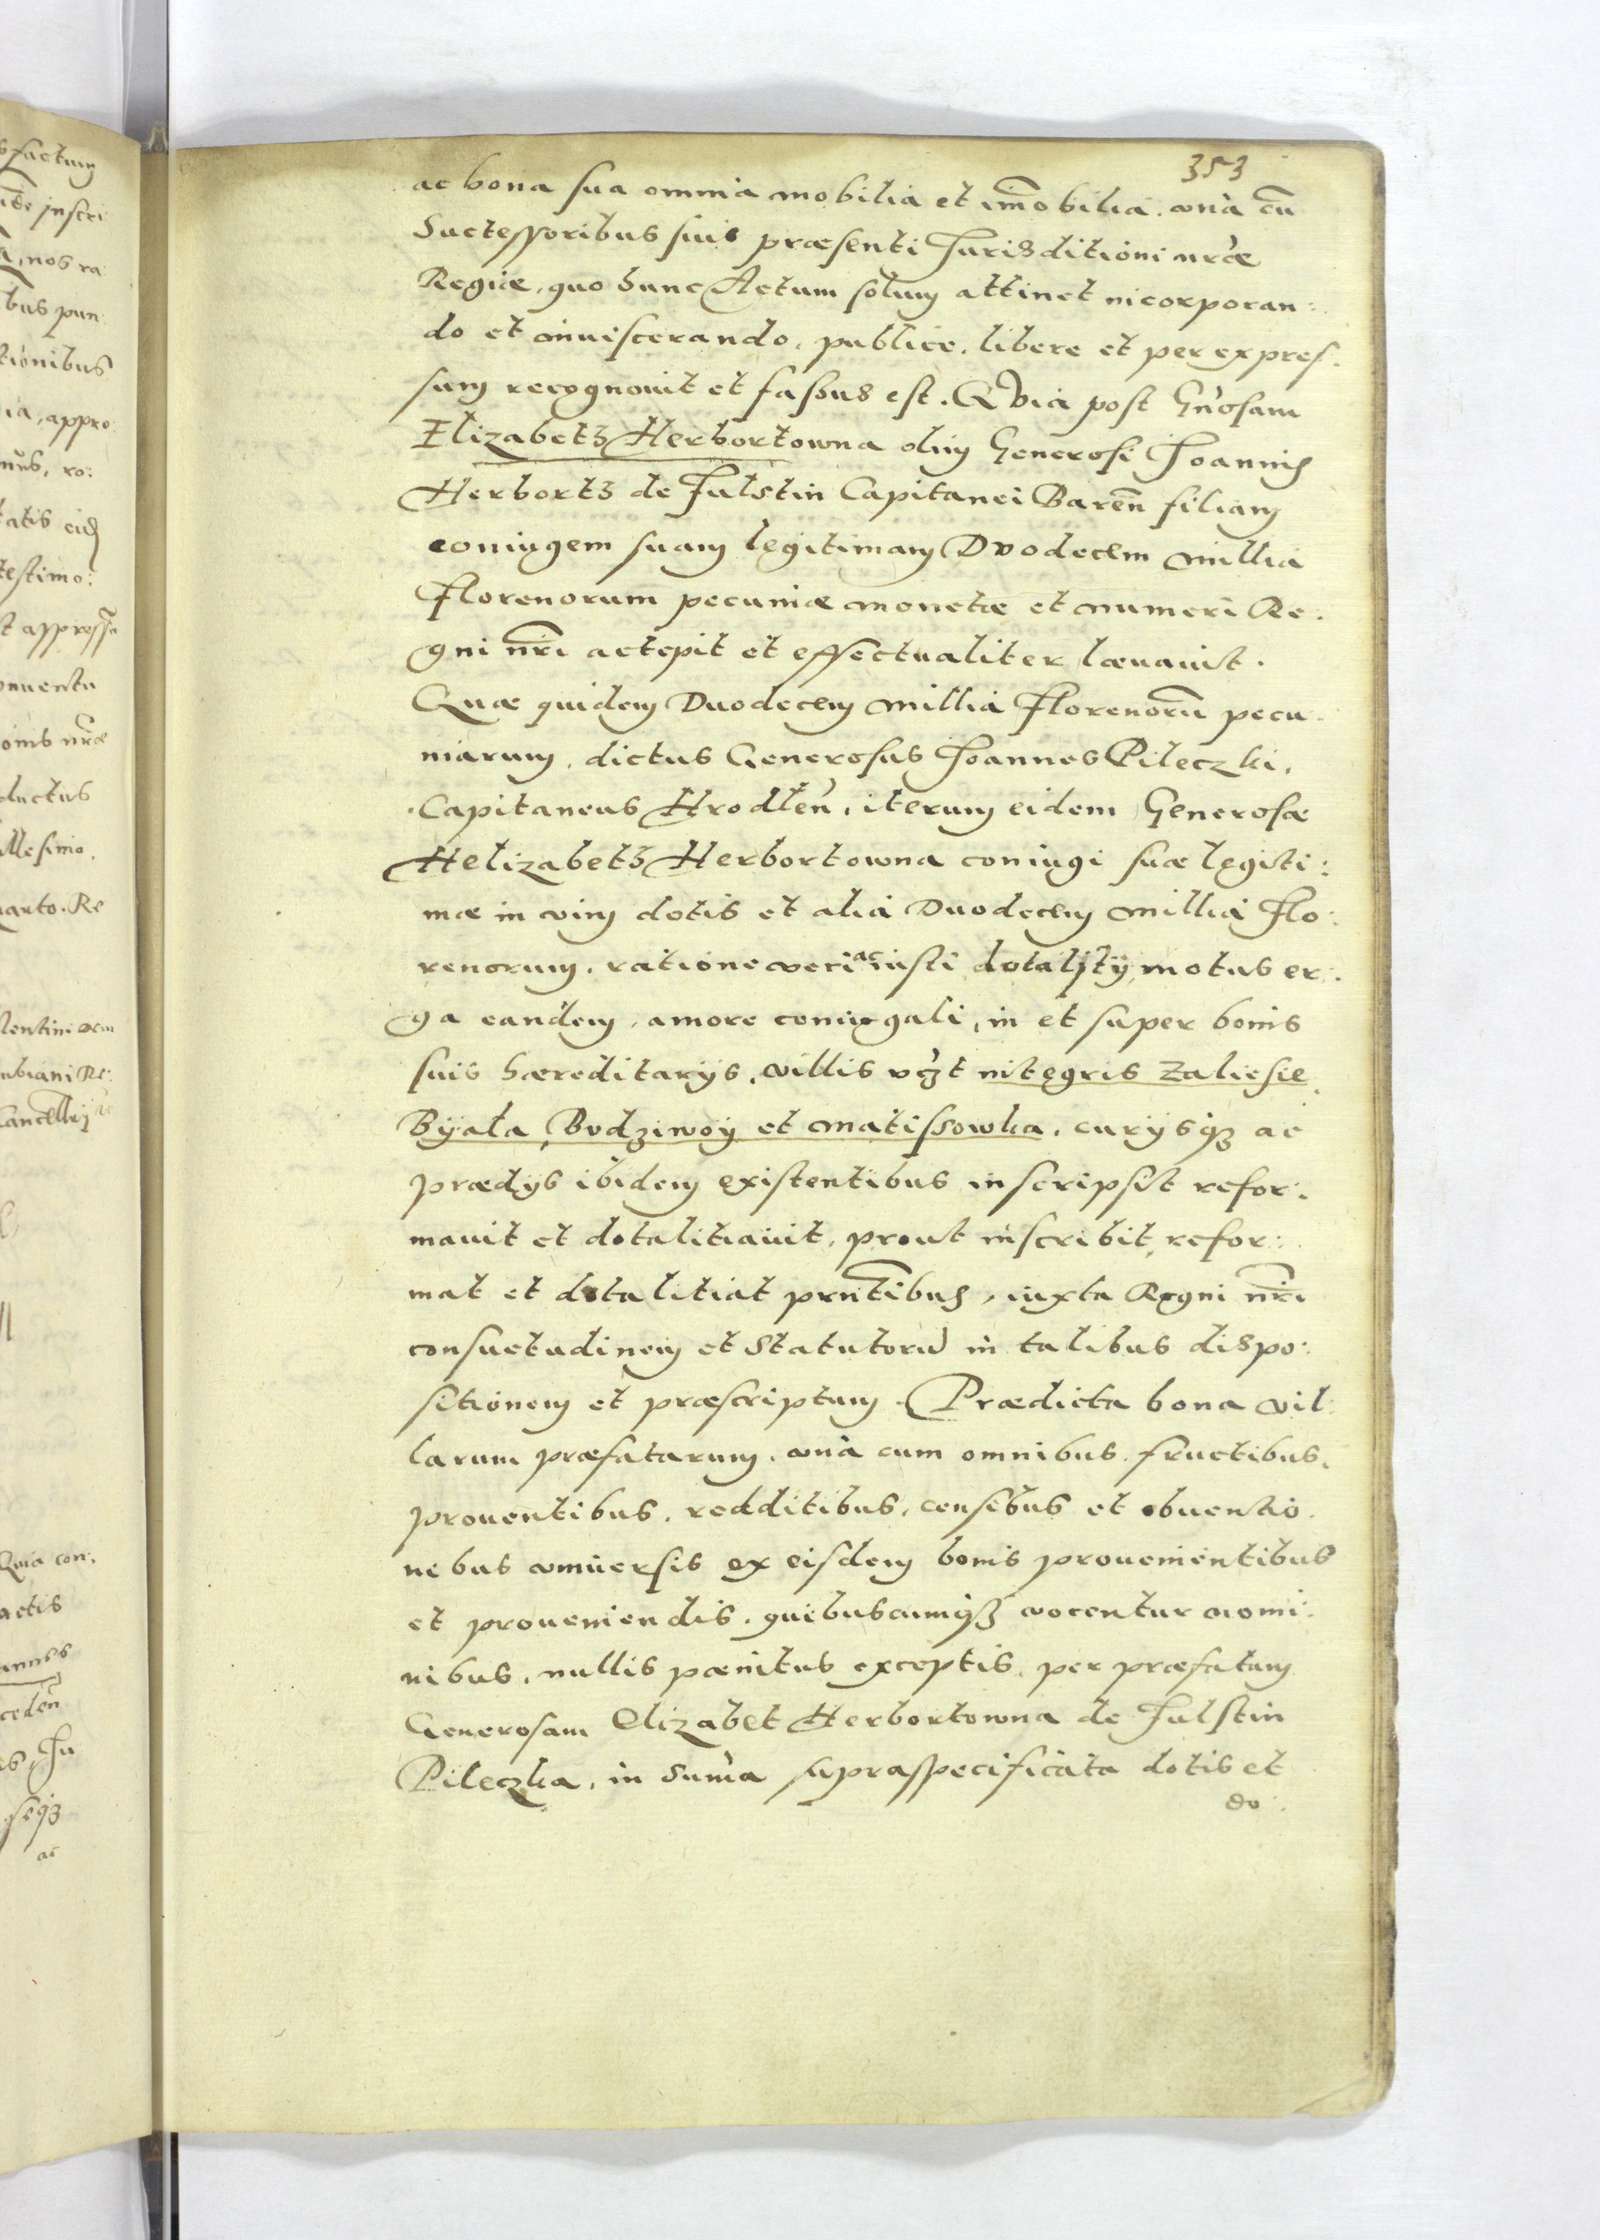 353
ac bona sua omnia mobilia et im̃obilia. unà cũ
Successoribus suis præsenti Jurisditioni nr̃æ
Regiæ, quo hunc Actum solum attinet incorporan:
do et inuiscerando, publice, libere et per expres:
sum recognouit et fassus est. Quia post Gn̄osam
Elizabeth Herbortowna olim Generosi Joannis
Herborth de Fulstin Capitanei Baren̄ filiam
coniugem suam legitimam Duodecem millia
florenorum pecuniæ monetæ et numeri Re:
gni nr̃i accepit et effectualiter læuauit.
Quæ quidem Duodecem millia florenorũ pecu:
niarum, dictus Generosus Joannes Pileczki,
Capitaneus Hrodlen̄, iterum eidem Generosæ
Helizabeth Herbortowna coniugi suæ legiti:
mæ in vim dotis et alia Duodecem millia flo:
renorum, ratione veri ac iusti dotalitÿ motus er:
ga eandem, amore coniugali, in et super bonis
suis hæreditarÿs, villis vcʒt integris Zaliesie
Bÿala, Budziwoÿ et Matissowka, curÿsqʒ ac
prædÿs ibidem existentibus inscripsit refor:
mauit et dotalitiauit, prout inscribit, refor:
mat et dotalitiat prñtibus, iuxta Regni nr̃i
consuetudinem et Statutorũ in talibus dispo:
sitionem et præscriptum. Prædicta bona vil:
larum præfatarum, unà cum omnibus fructibus,
prouentibus, redditibus, censibus et obuentio
nebus uniuersis ex eisdem bonis prouenientibus
et proueniendis, quibuscumqʒ vocentur nomi:
nibus, nullis pænitus exceptis, per præfatam
Generosam Elizabet Herbortowna de Fulstin
Pileczka, in Sum̃a supraspecificata dotis et
do: